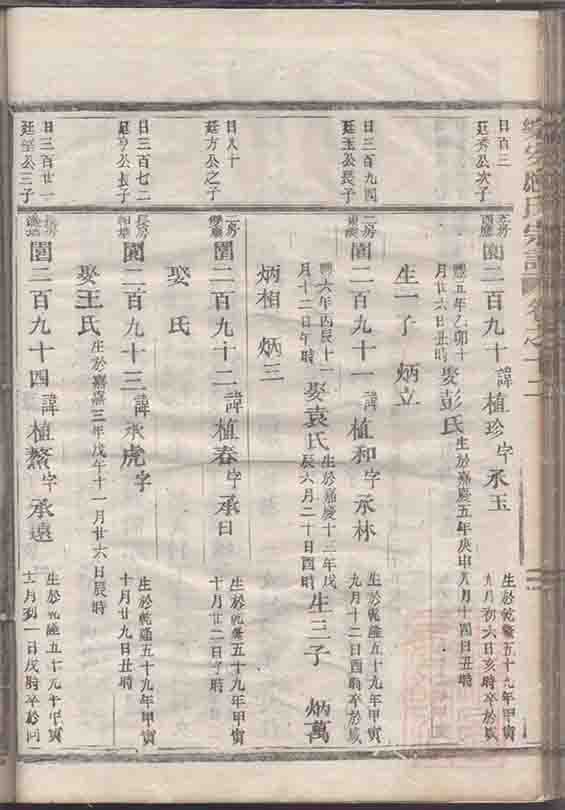 應氏宗譜 卷之十二
日百三
廷秀公次子
園二百九十 諱植珍字承玉 生於乾隆五十九年甲寅
九月初六日亥時卒於咸
豐五年乙卯十
月廿六日丑時 娶彭氏 生於嘉慶五年庚申
八月十四日丑時
生一子 炳立
日三百九四
廷玉公長子
二房
園二百九十一 諱植和字承林 生於乾隆五十九年甲寅
九月十二日酉時卒於咸
豐六年丙辰十一
月十二日午時 娶袁氏 生於嘉慶十三年戊
辰六月二十日酉時 生三子 炳萬
炳相 炳三
日八十
廷方公之子
二房
園二百九十二 諱植春字承日 生於乾隆五十九年甲寅
十月廿二日子時
娶 氏
日三百七二
廷亨公長子
長房
園二百九十三 諱承虎字 生於乾隆五十九年甲寅
十月廿九日丑時
娶王氏 生於嘉慶三年戊午十一月廿六日辰時
日三百廿一
公三子
長房
園二百九十四 諱植鰲字承遠 生於乾隆五十九年甲寅
十一月初一日戌時卒於同